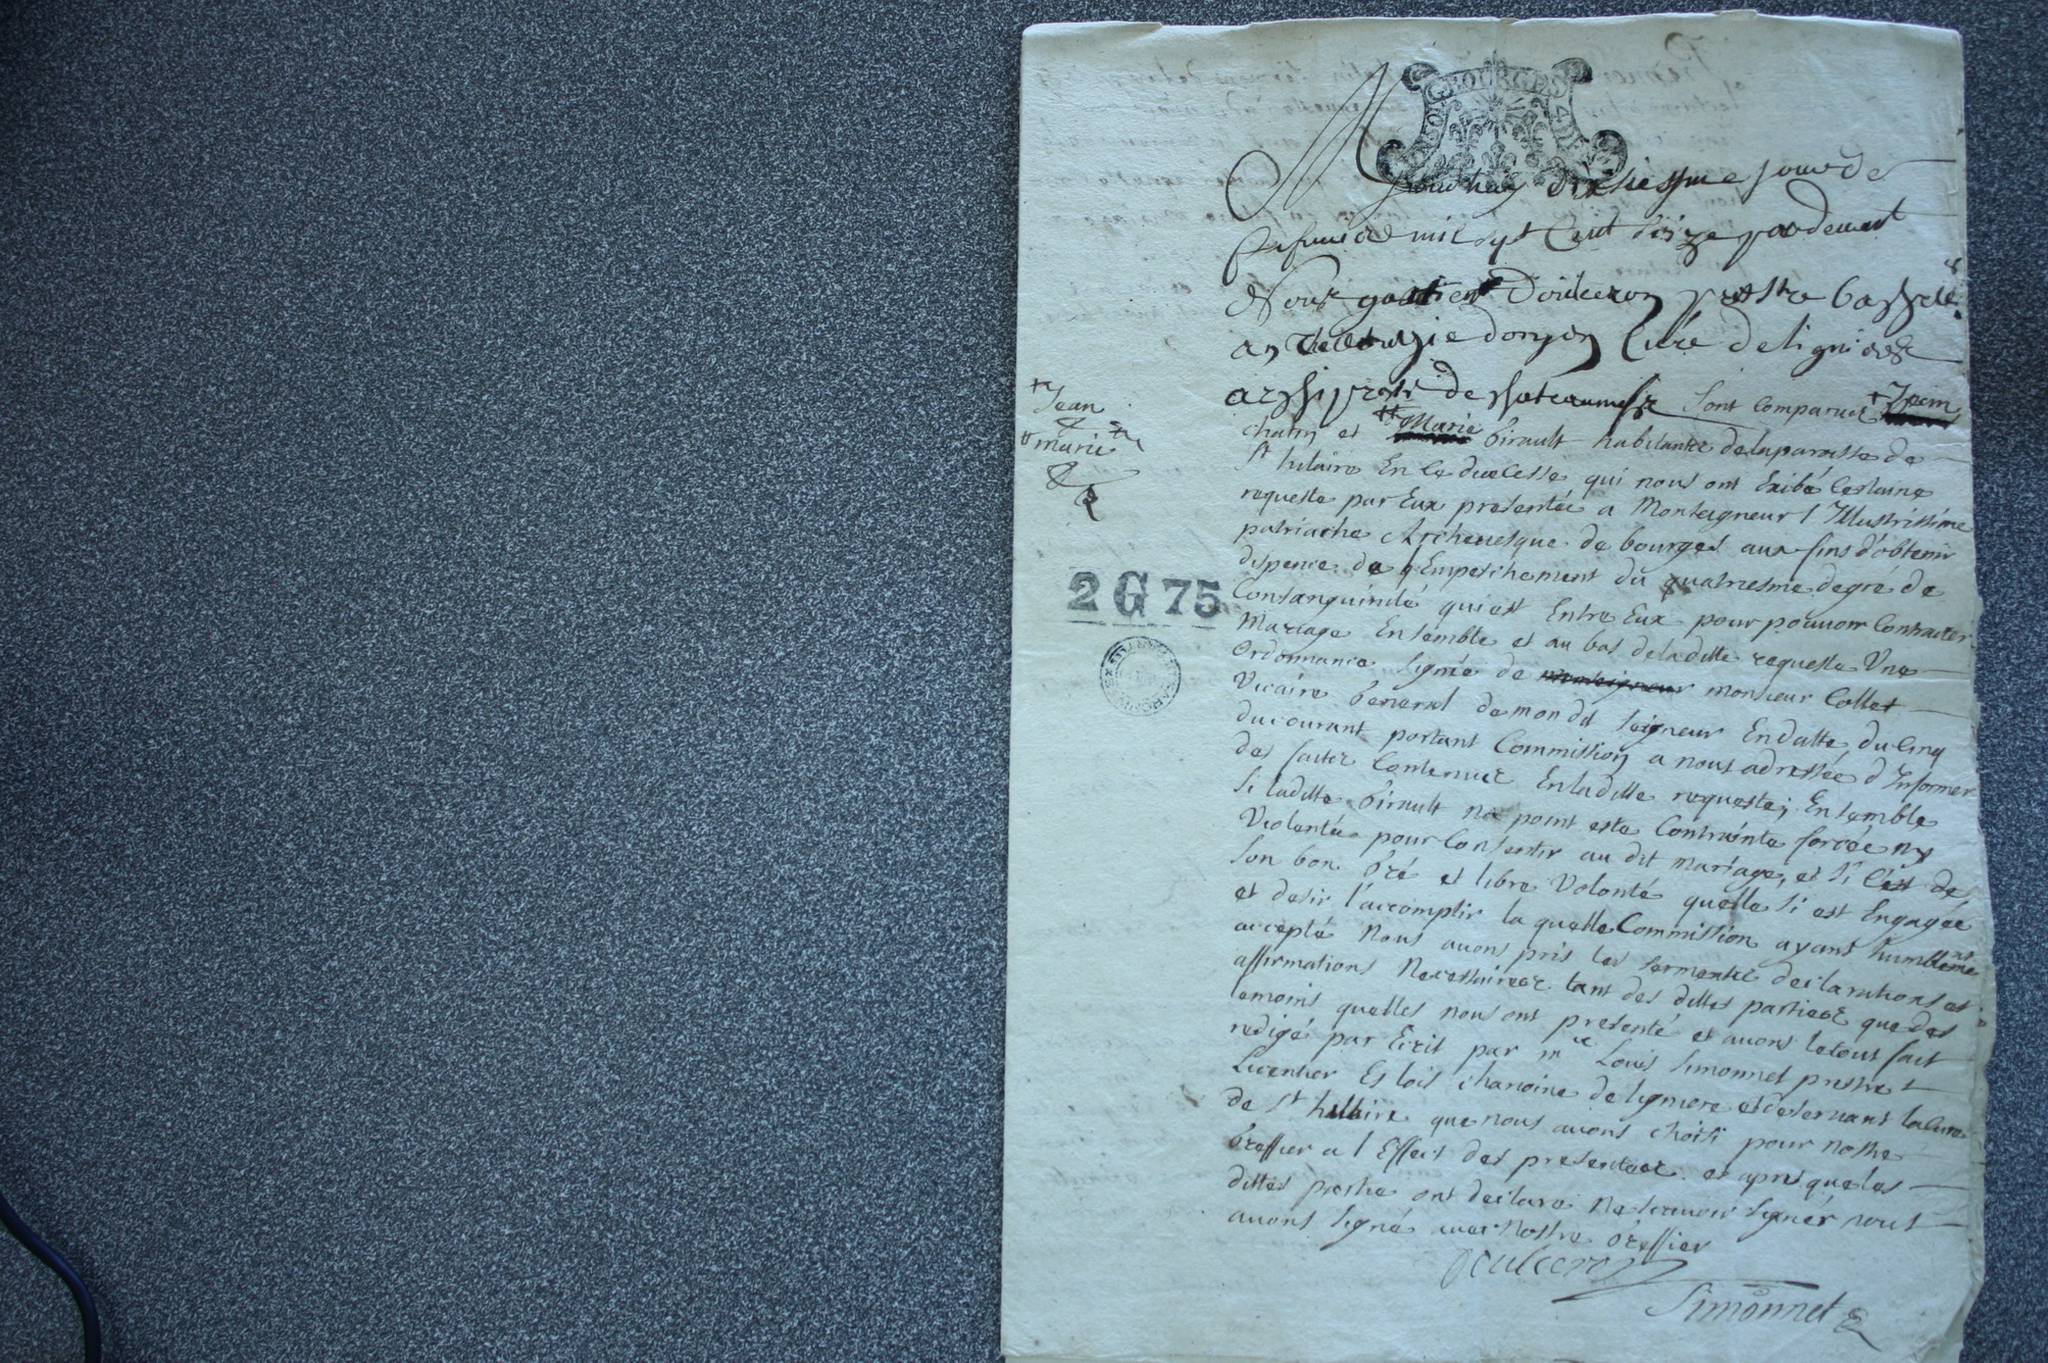 G. BOURGES
4 DE
Aujourhuy dixsiesme jour de
januier mil sept Cent seize pardeuant
Nous gastien Doulceron prestre bachelier
an theologie doyen Curé de lignieres
archiprestre de chateaumeillant sont comparus + Jean
chatin et ++ Marie Girault habitants de la paroisse de
St hilaire En ce diocesse qui nous ont Exibé Certaine
requeste par Eux presentée a Monseigneur l'Illustrissime
patriarche Archeuesque de bourges aux fins d'obtenir
dispence de l'Empeschement du quatriesme degré de
Consanguinité qui est Entre Eux pour pouuoir Contracter
Mariage Ensemble et au bas de la ditte requeste Une
Ordonnance signée de monseigneur monsieur Collet
Vicaire General de mon dit seigneur En datte du Cinq
du courant portant Commission a nous adressée d'Informer
des faits Contenus En la ditte requeste, Ensemble
si la ditte Girault na point esté Contrainte forcée ny
Violentée pour Consentir au dit mariage, et si C'est de
son bon Gré et libre Volonté quelle si est Engagée
et desir l'accomplir la quelle Commission ayant humblement
accepté Nous auons pris les serments declarations et
affirmations Necessaires tant des dittes parties que des
temoins quelles nous ont presenté et auons le tout fait
redigé par Ecrit par mre Louis Simonnet prestre
Licentier Es lois chanoine de ligniere et deseruant la Cure
de St hillaire que nous auons choisi pour nostre
Greffier a l'Effect des presentes et apres que les
dittes partie ont declaré Ne scauoir signer nous
auons signé auec Nostre Greffier
Doulceron
Simonnet
+ Jean
++ marie
2 G 75